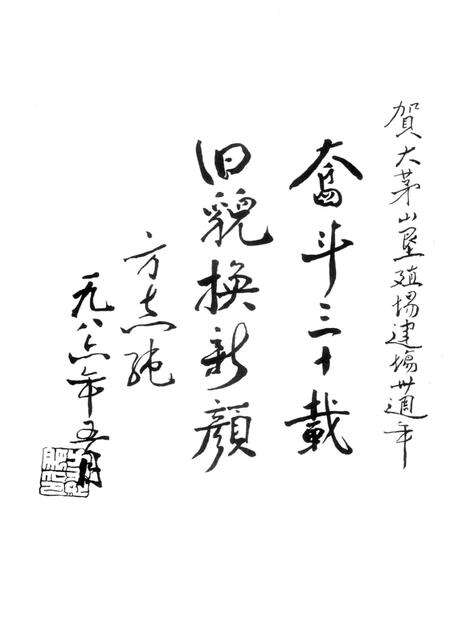 賀大茅山垦殖場建場卅週年
奋斗三十載
旧貌换新顔
方志纯
一九八六年五月